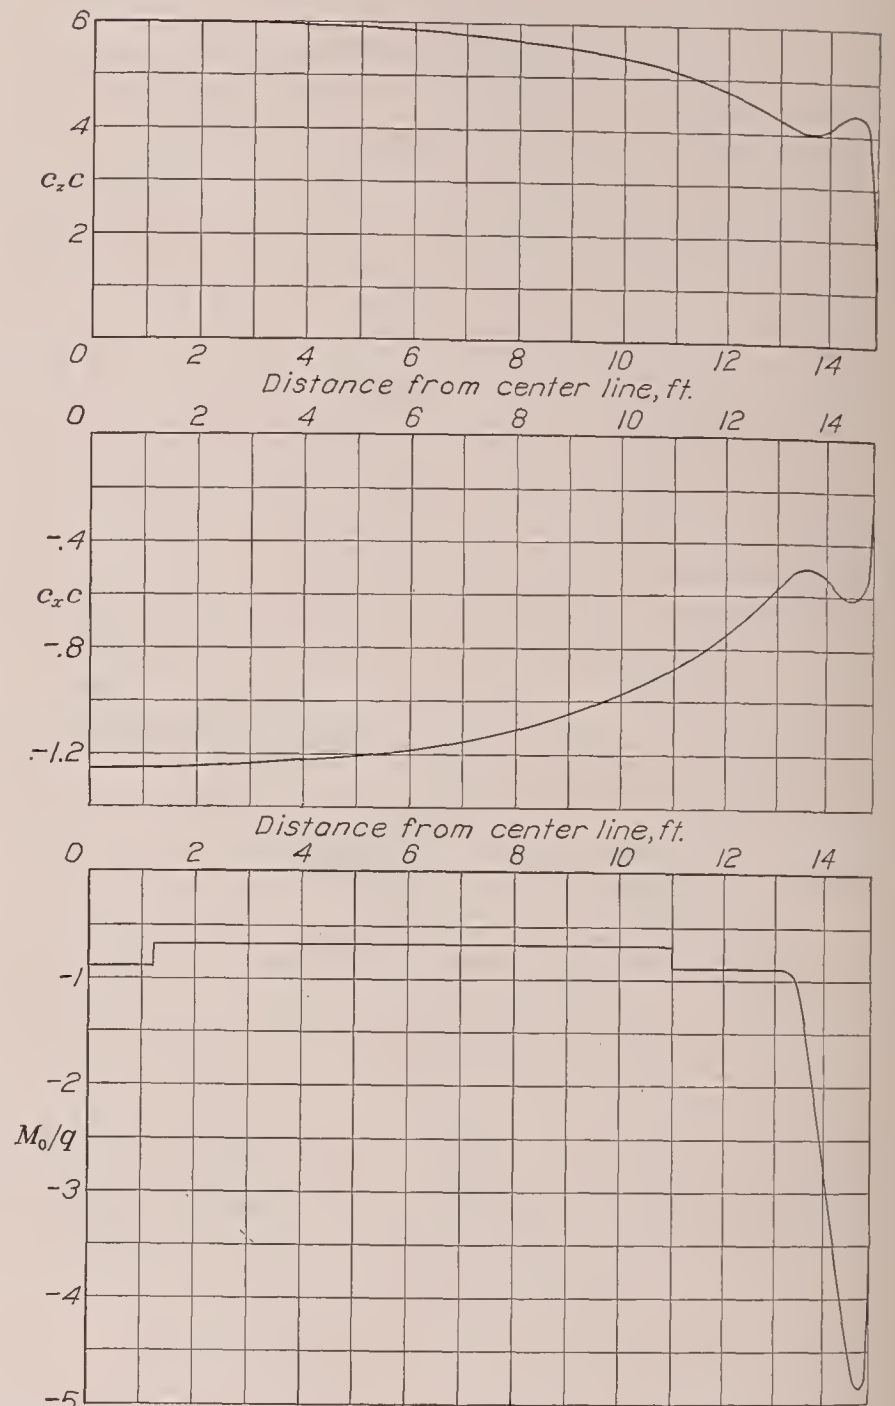 6
4
c_z c
2
0 2 4 6 8 10 12 14
Distance from center line, ft.
0 2 4 6 8 10 12 14
-.4
c_x c
-.8
-1.2
Distance from center line, ft.
0 2 4 6 8 10 12 14
-1
-2
M_0/q
-3
-4
-5